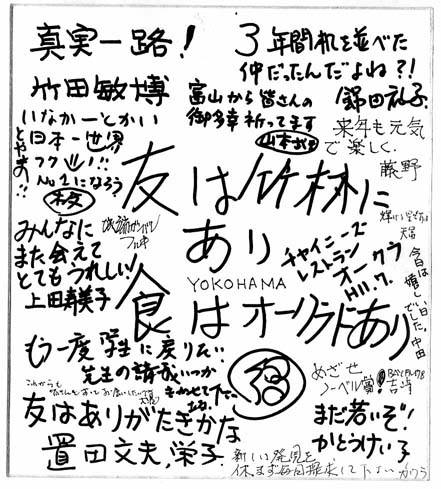 真実一路!
竹田敏博
3年間机を並べた
仲だったんだよね?!
錦田礼子
富山から皆さんの
御多幸祈ってます
いなかーとかい
日本一世界
No.1になろう
来年も元気
で楽しく.
藤野
友は竹林に
あり
食
YOKOHAMA
はオークラにあり
チャイニーズ
レストラン
オークラ
H11.7.
みんなに
また会えて
とてもうれしい!
上田寿美子
今日は嬉しい日でした. 中田
もう一度学生に戻りたい!
先生の講義いつか
きかせて下さい
めざせ
ノーベル賞!
友はありがたきかな
置田文夫, 栄子.
まだ若いぞ!
かとうけい子
新しい発見を
休まず毎日探求して下さい